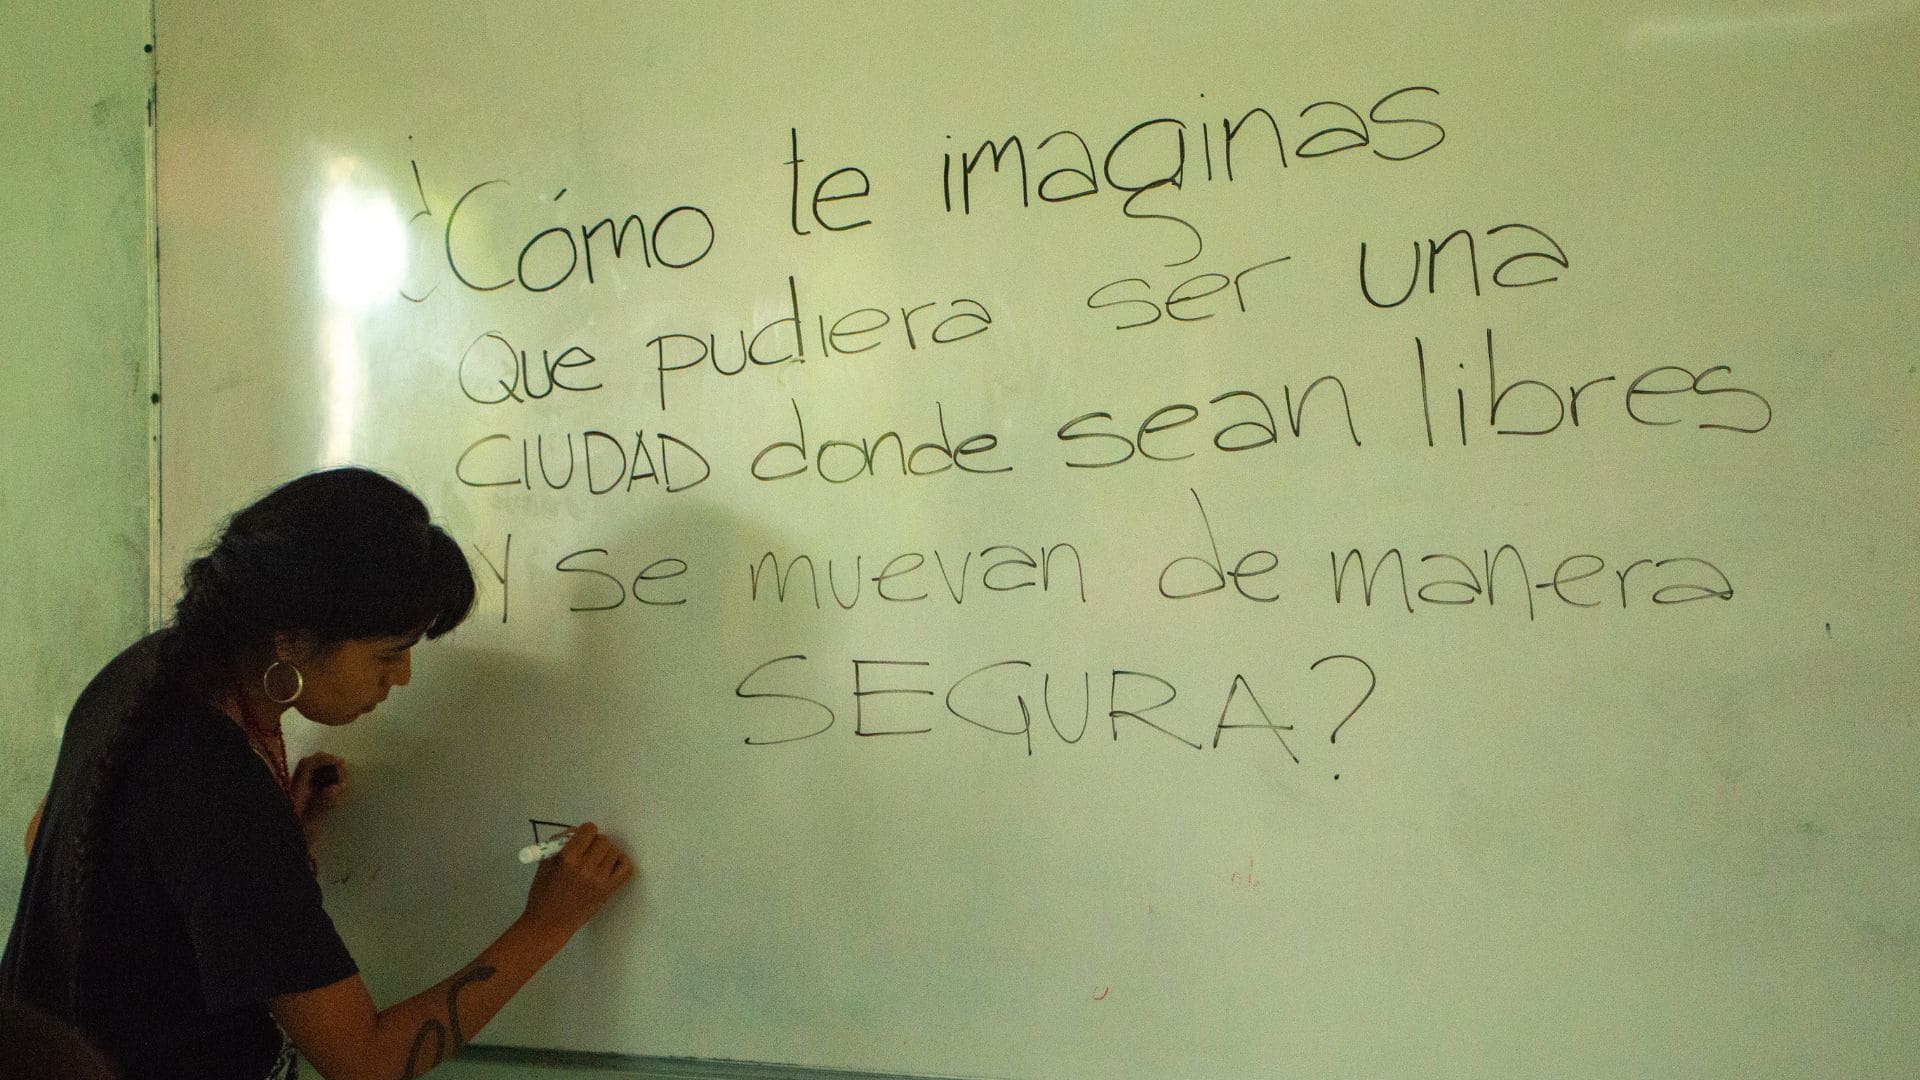 ¿Cómo te imaginas
Que pudiera ser una
CIUDAD donde sean libres
Y se muevan de manera
SEGURA?